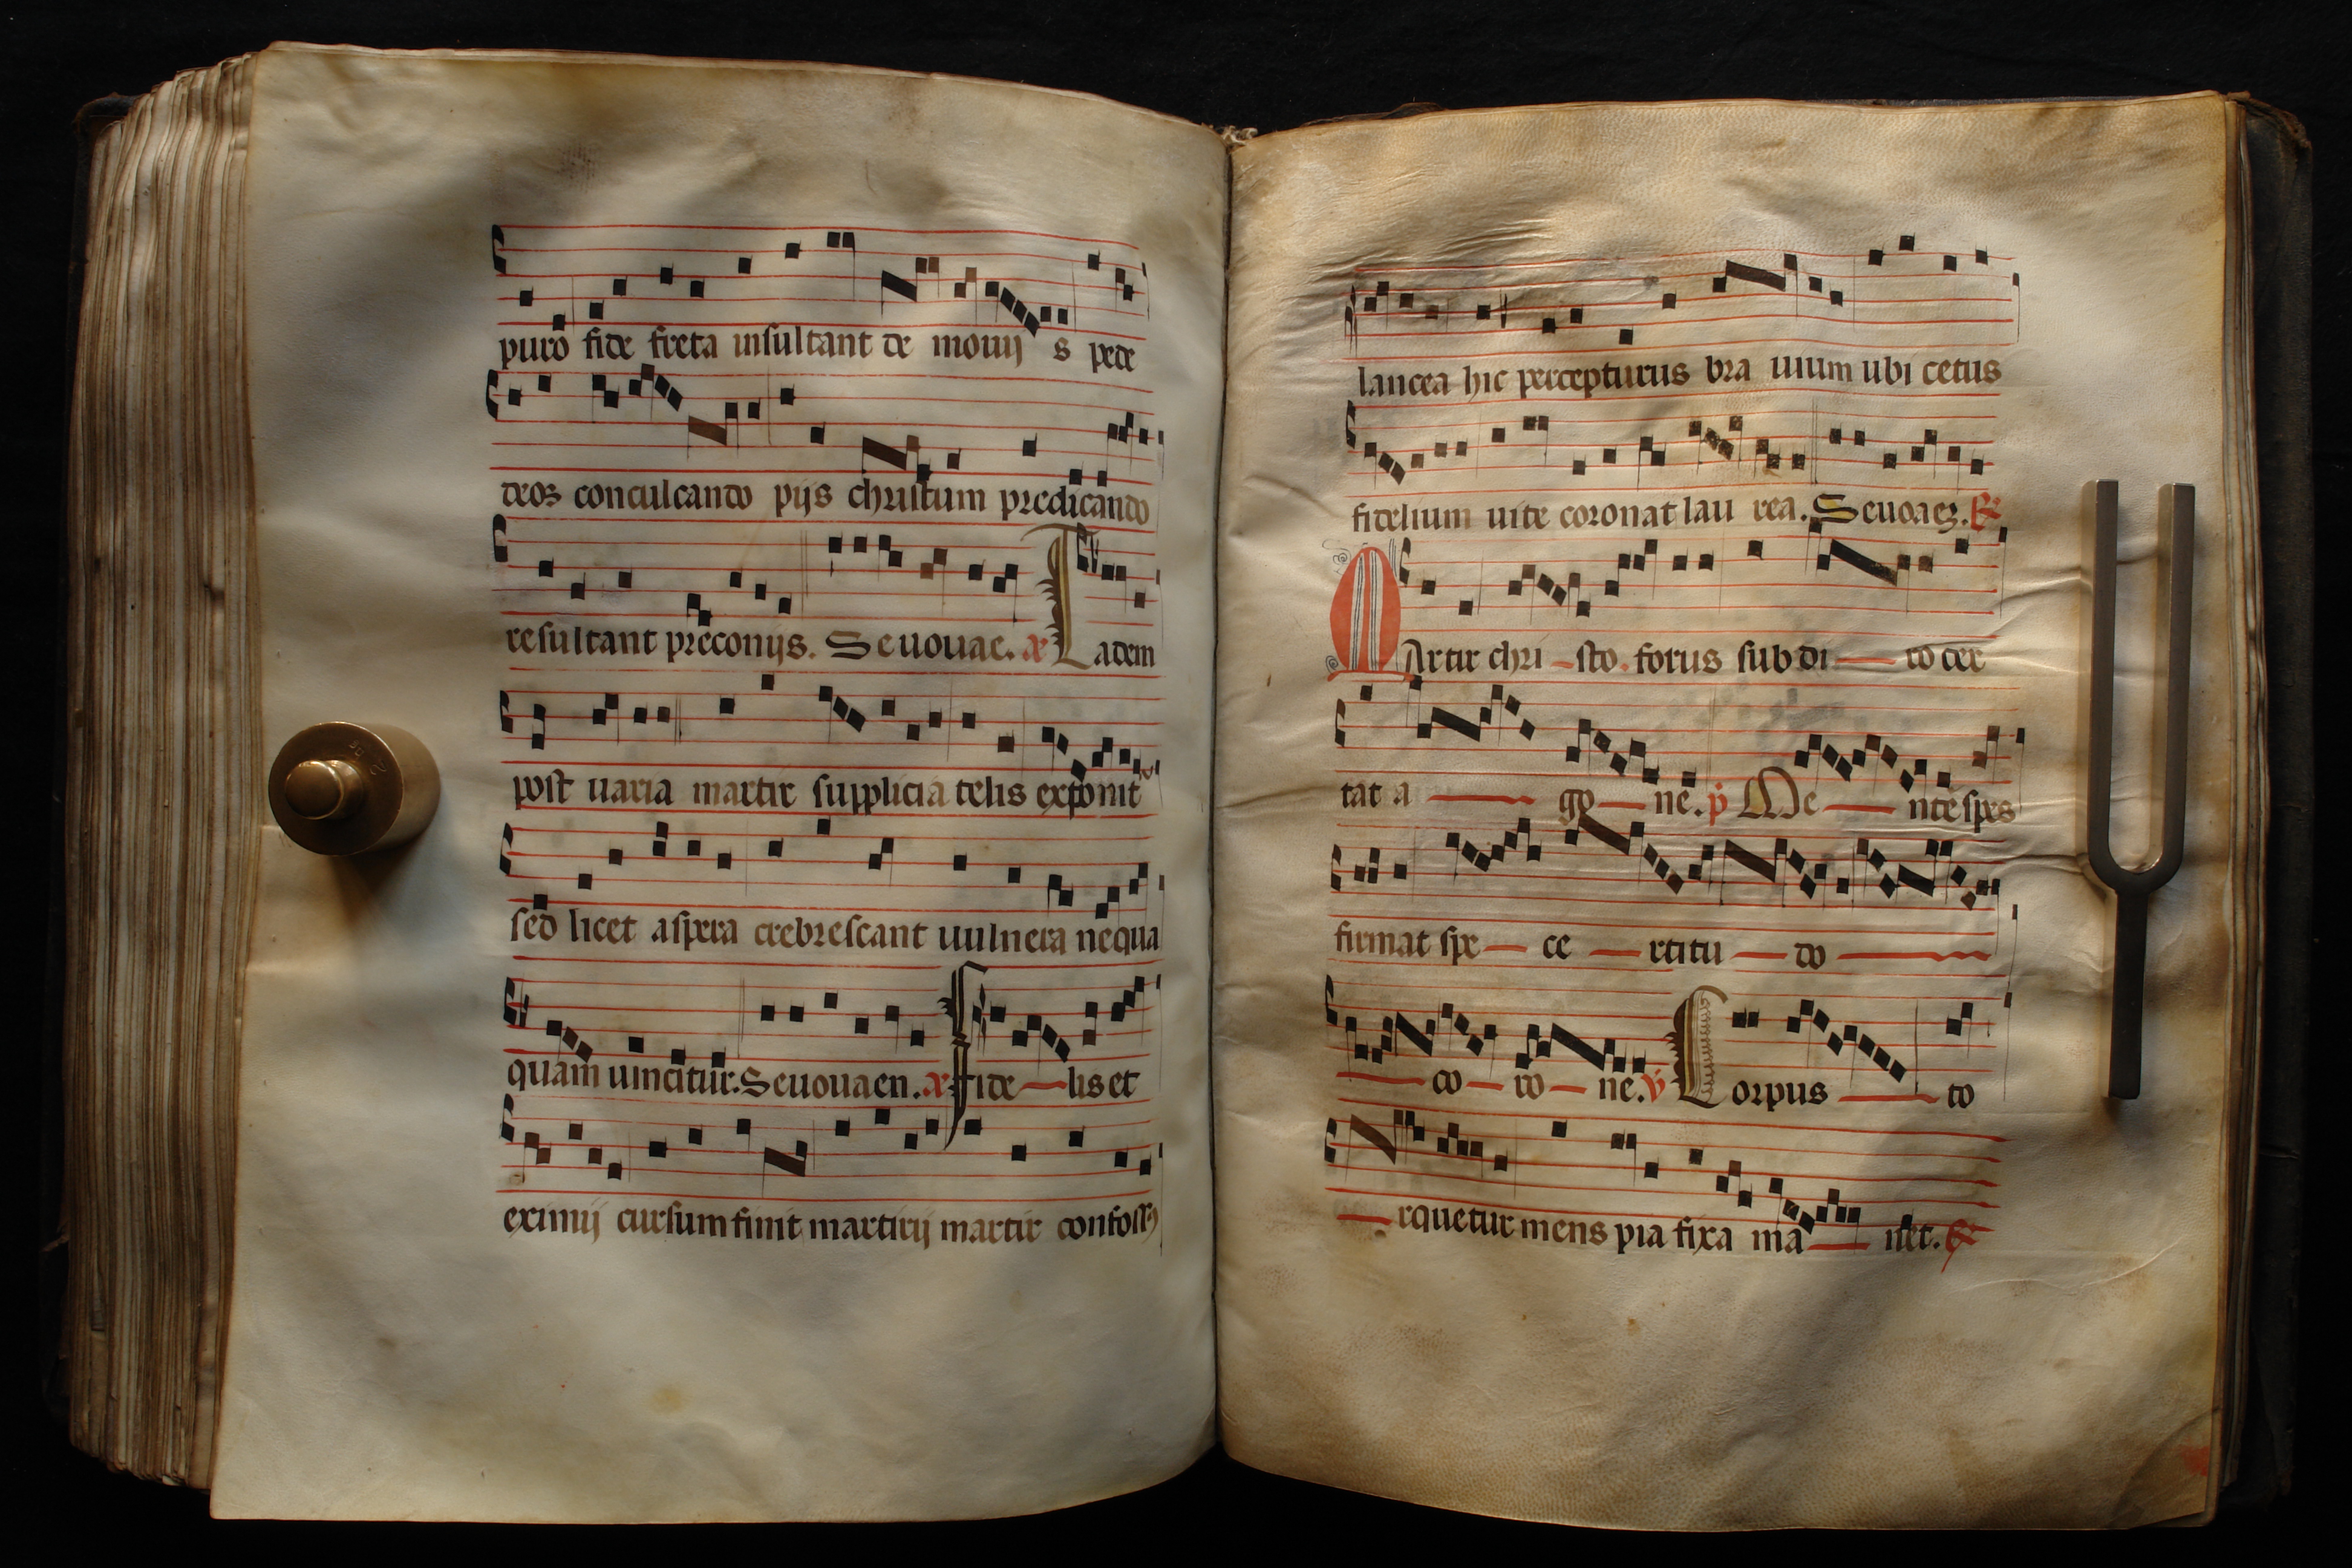 puro fide freta insultant de monij s pede
deoꝝ conculcando pijs christum predicando
resultant preconijs. Seuouae. Ladem
post uaria martir supplicia telis exponit
sed licet aspera crebrescant uulnera nequa
quam uincitur. Seuouaen. Fide lis et
eximij cursum finit martirij martir confoss
lancea hic percepturus bra uium ubi cetus
fidelium uite coronat lau rea. Seuoaeꝫ. R
MArtir chri sto. forus sub di to cer
tat a go ne. p Me nte spes
firmat spe ce rtitu do
co ro ne. v Corpus to
rquetur mens pia fixa ma net.